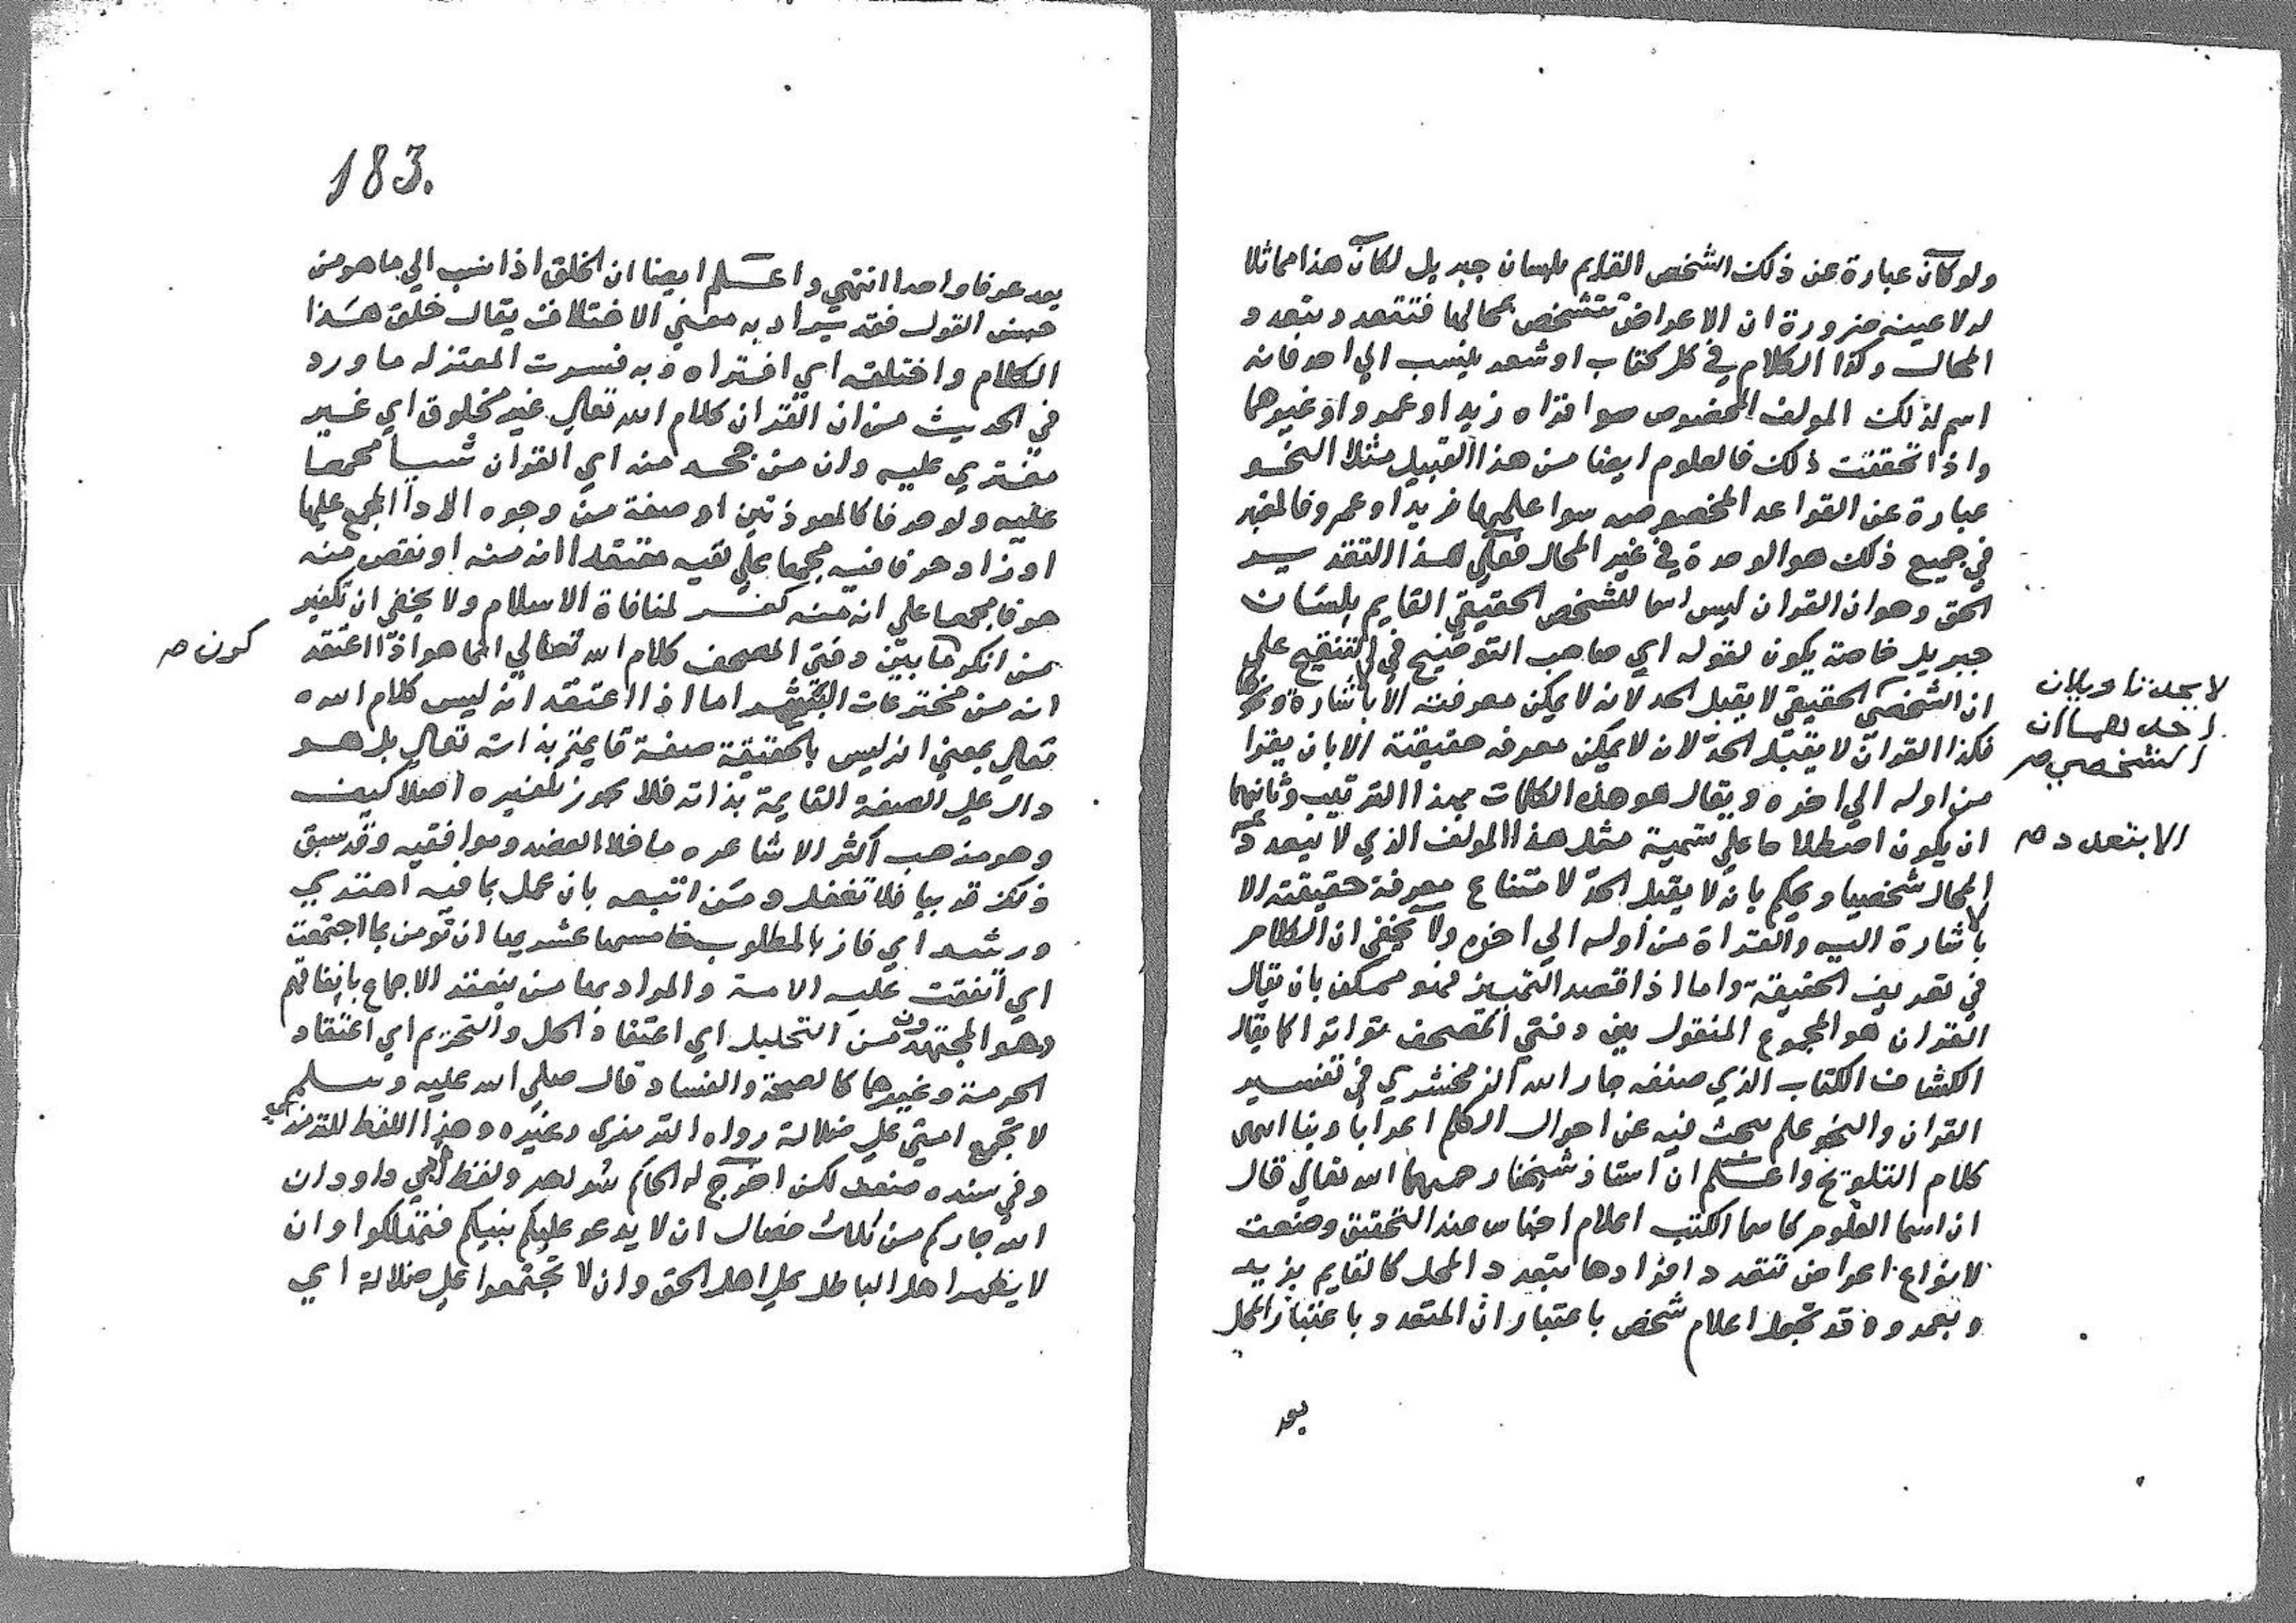 ولو كان عبارة عن ذلك الشخص القايم بلسان جبريل لكان هذا مماثلا
له لا عينه ضرورة ان الاعراض تتشخص بمحالها فتتعدد بتعدد
المحال وكذا الكلام في كل كتاب او شعر ينسب الي احد فانه
اسم لذلك المولف المخصوص سوا قراه زيد او عمرو او غيرهما
واذا تحققت ذلك فالعلوم ايضا من هذا القبيل مثلا النحو
عبارة عن القواعد المخصوصه سوا علمها زيد او عمرو فالمعتبر
في جميع ذلك هو الوحدة في غير المحال فعلي هذا التقدير
الحق وهو ان القران ليس اسما للشخص الحقيقي القايم بلسان
جبريل خاصة يكون لقوله اي صاحب التوضيح في التنقيح علي
ان الشخصي الحقيقي لا يقبل الحد لانه لا يمكن معرفته الا بالاشارة ونحوها
فكذا القران لا يقبل الحد لانه لا يمكن معرفه حقيقته الا بان يقرا
من اوله الي اخره ويقال هو هذه الكلمات بهذا الترتيب وثانيهما
ان يكون اصطلاحا علي تسمية مثل هذا المولف الذي لا يتعدد
المحال شخصيا ويحكم بانه لا يقبل الحد لامتناع معرفة حقيقته الا
بالاشارة اليه والقراة من اوله الي اخره ولا يخفى ان الكلام
في تعريف الحقيقة واما اذا قصد التمييز فهو ممكن بان يقال
القران هو المجموع المنقول بين دفتي المصحف تواترا كما يقال
الكشاف الكتاب الذي صنفه جار الله الزمخشري في تفسير
القران والنحو علم يبحث فيه عن احوال الكلم اعرابا وبنا انتهى
كلام التلويح واعلم ان استاذ شيخنا رحمهما الله تعالي قال
ان اسما العلوم كاسما الكتب اعلام اجناس عند التحقيق وضعت
لانواع اعراض تتعدد افرادها بتعدد المحل كالقايم بزيد
وبعمرو وقد تجعل اعلام شخص باعتبار ان المتعدد باعتبار المحل
يعد
لا يحد
احدهما ان
الشخصي صح
الا بتعدد صح
183.
يعد عرفا واحدا انتهي واعلم ايضا ان الخلق اذا نسب الي ما هو من
جنس القول فقد يراد به معني الاختلاق يقال خلق هذا
الكلام واختلقه اي افتراه وبه فسرت المعتزله ما ورد
في الحديث من ان القران كلام الله تعالي غير مخلوق اي غير
مفتري عليه وان من جحد منه اي القران شيا مجمعا
عليه ولو حرفا كالمعوذتين او صفة من وجوه الادا المجمع عليها
او زاد حرفا فيه مجمعا علي نفيه معتقدا انه منه او نقص منه
حرفا مجمعا علي انه منه كفر لمنافاة الاسلام ولا يخفي ان تكفير
من انكر ما بين دفتي المصحف كلام الله تعالي انما هو اذا اعتقد
انه من مخترعات البشر اما اذا اعتقد انه ليس كلام الله
تعالي بمعني انه ليس بالحقيقة صفة قايمة بذاته تعالي بل هو
دال علي الصفة القايمة بذاته فلا يجوز تكفيره اصلا كيف
وهو مذهب اكثر الاشاعره ما خلا العضد وموافقيه وقد سبق
فلا تغفل ومن اتبعه بان عمل بما فيه اهتدي
ورشد اي فاز بالمطلوب خامسها عشريها ان تومن بما اجتمعت
اي اتفقت عليه الامة والمراد بها من ينعقد الاجماع باتفاقهم
وهو المجتهدون من التحليل اي اعتقاد الحل والتحريم اي اعتقاد
الحرمة وغيرهما كالصحة والفساد قال صلي الله عليه وسلم
لا تجتمع امتي علي ضلالة رواه الترمذي وغيره وهذا اللفظ للترمذي
وفي سنده ضعف لكن اخرج له الحاكم شواهد ولفظ ابي داود ان
الله جاركم من ثلاث خصال ان لا يدعو عليكم نبيكم فتهلكوا وان
لا يظهر اهل الباطل علي اهل الحق وان لا تجتمعوا علي ضلالة اي
كون صح